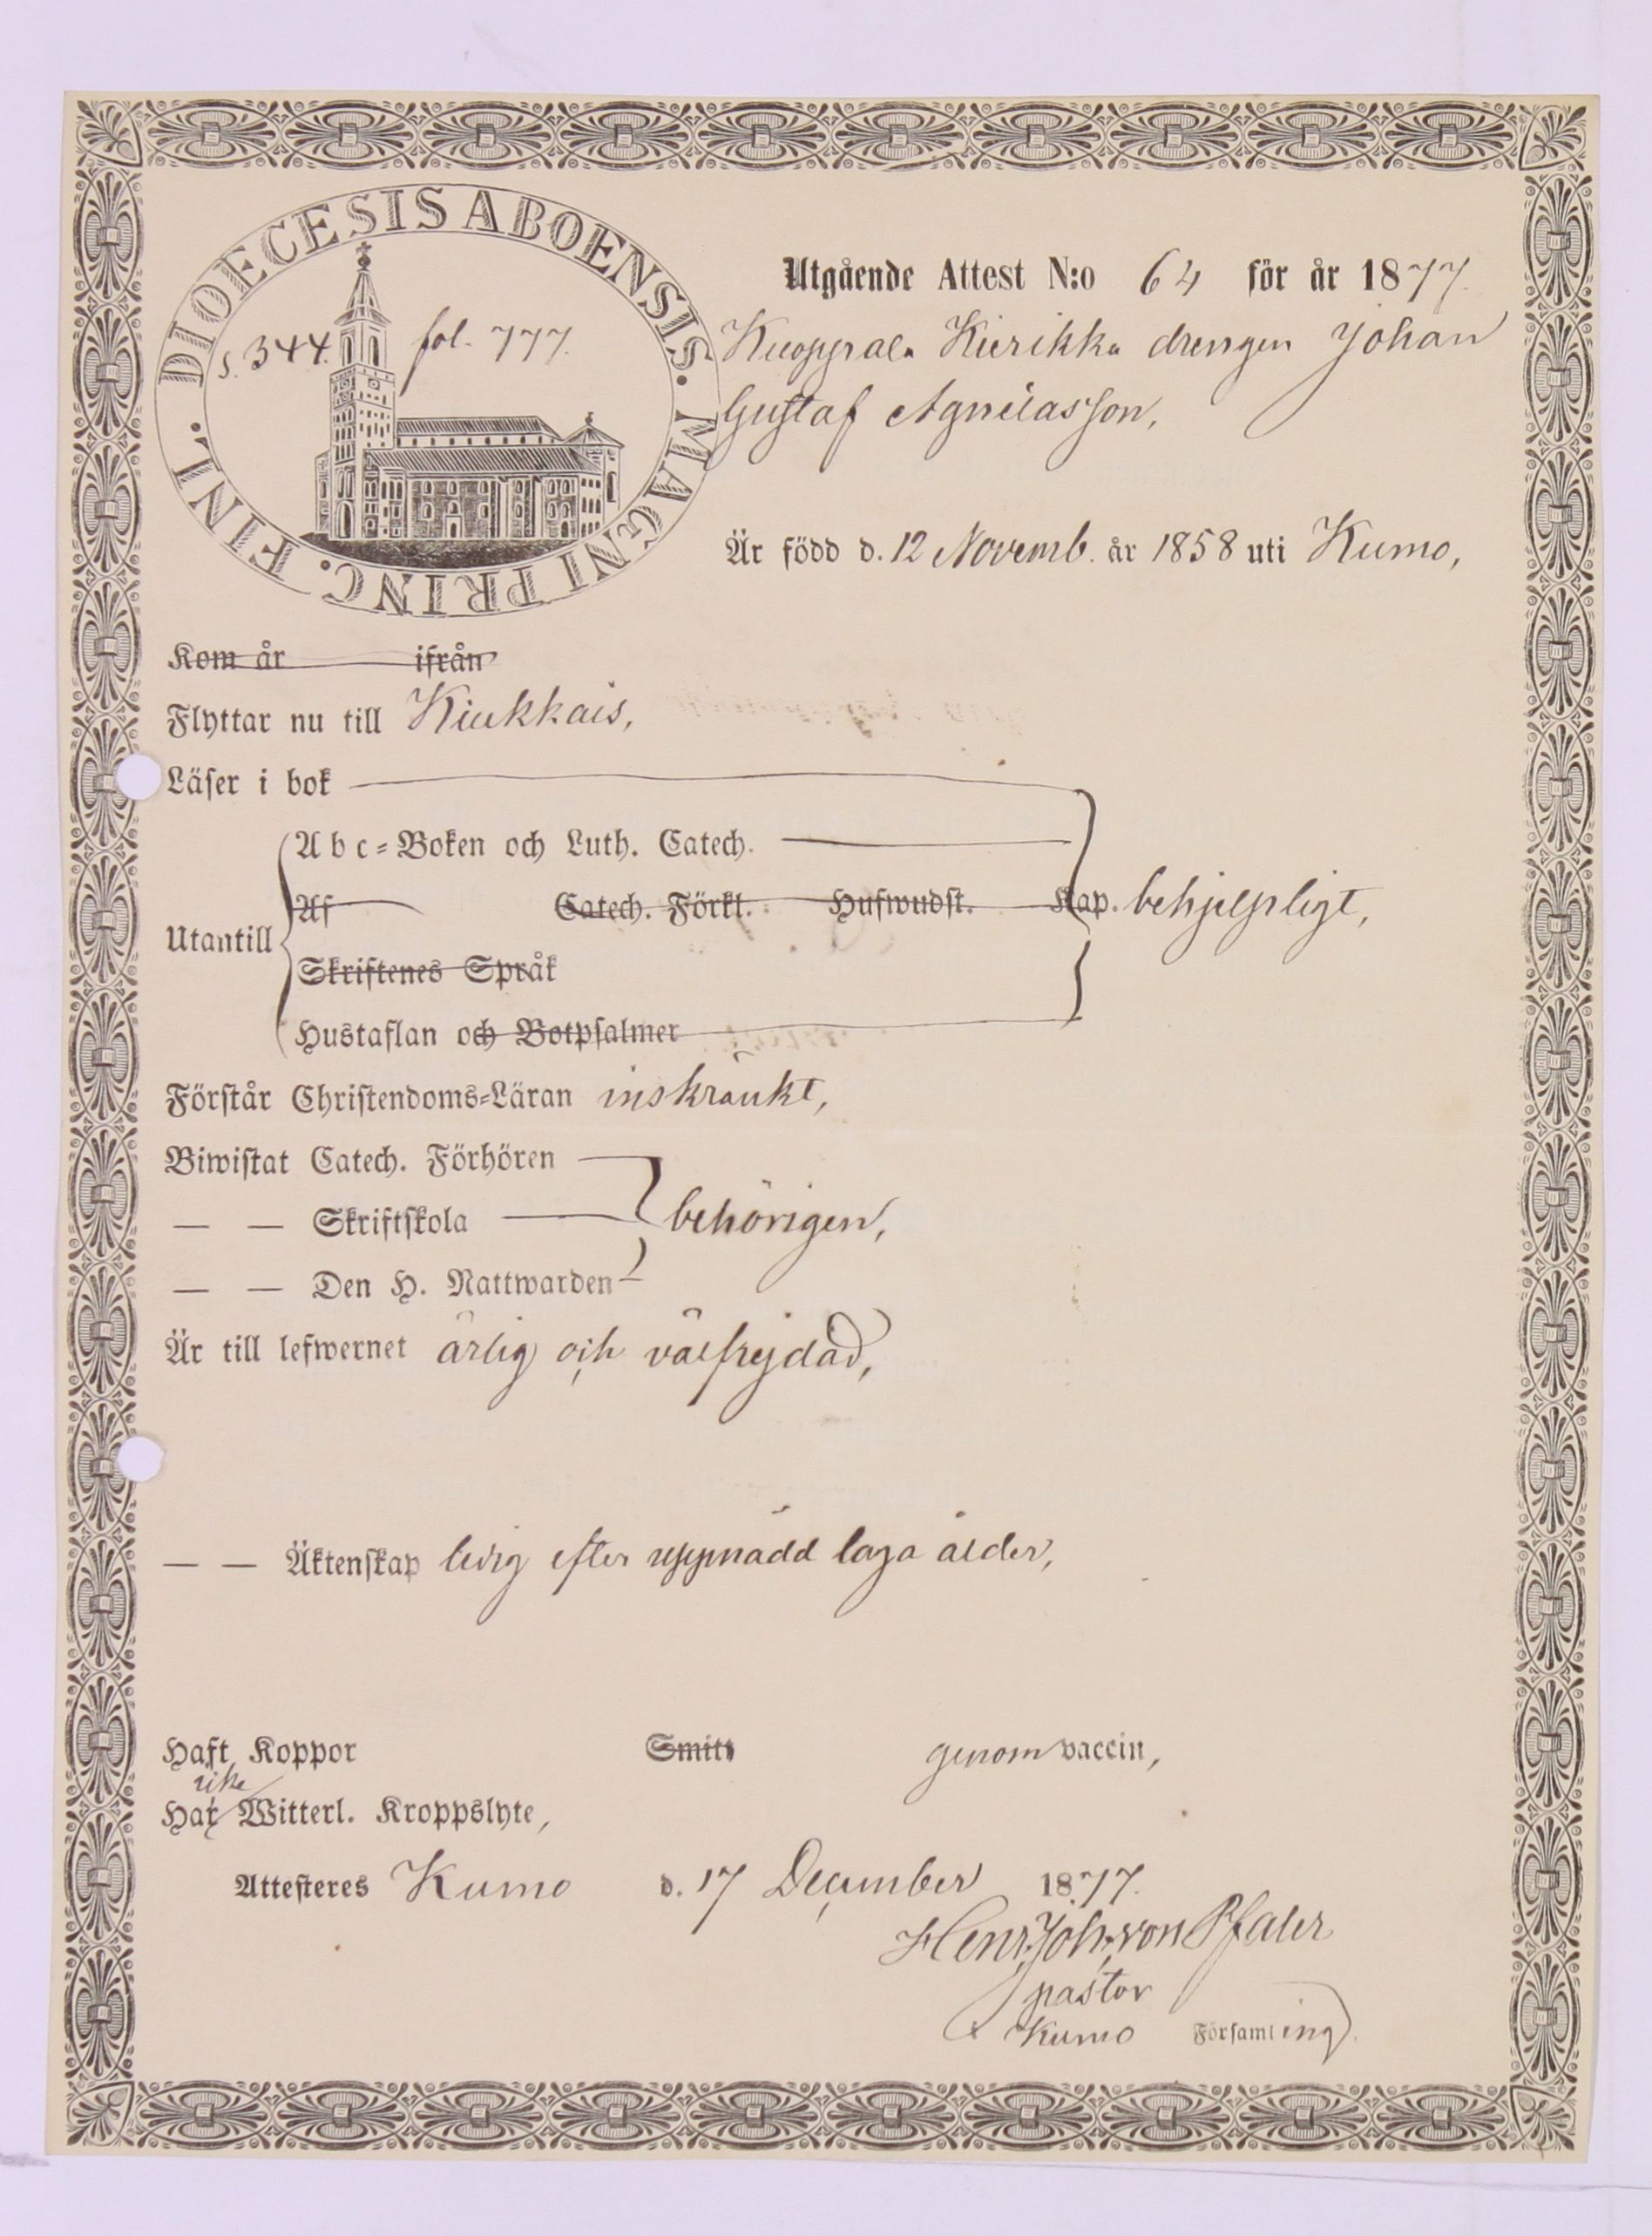 DIOECESIS ABOENSIS. MAGNI PRINC. FINL.
s. 344. fol. 777.
Utgående Attest N:o 64 för år 1877.
Kuoppala Kierikka drengen Johan
Gustaf Agneiasson,
Är född d. 12 Novemb. år 1858 uti Kumo,
Kom år ifrån
Flyttar nu till Kiukkais,
Läser i bok
Abc-Boken och Luth. Catech.
Utantill Af Catech. Förkl. Hufwudst. Kap. behjelpligt,
Skriftenes Språk
Hustaflan och Botpsalmer
Förstår Christendoms-Läran inskränkt,
Biwistat Catech. Förhören
— — Skriftskola behörigen,
— — Den H. Nattwarden
Är till lefwernet ärlig och välfrejdad,
— — Äktenskap ledig efter uppnådd laga ålder,
Haft Koppor Smitt genom vaccin,
Har icke Witterl. Kroppslyte,
Attesteres Kumo d. 17 December 1877.
Henr. Joh. von Pfaler
pastor
i Kumo Församling.